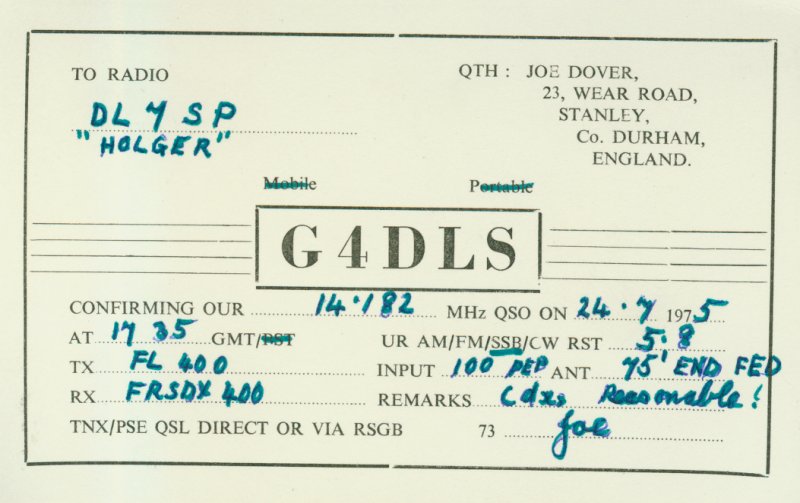 TO RADIO
DL 7 SP
"HOLGER"
QTH : JOE DOVER,
23, WEAR ROAD,
STANLEY,
Co. DURHAM,
ENGLAND.
Mobile Portable
G4DLS
CONFIRMING OUR 14.182 MHz QSO ON 24.7 1975
AT 1735 GMT/BST UR AM/FM/SSB/CW RST 5.8
TX FL 400 INPUT 100 PEP ANT 75' END FED
RX FRSDX 400 REMARKS Cdxs Reasonable!
TNX/PSE QSL DIRECT OR VIA RSGB 73 Joe